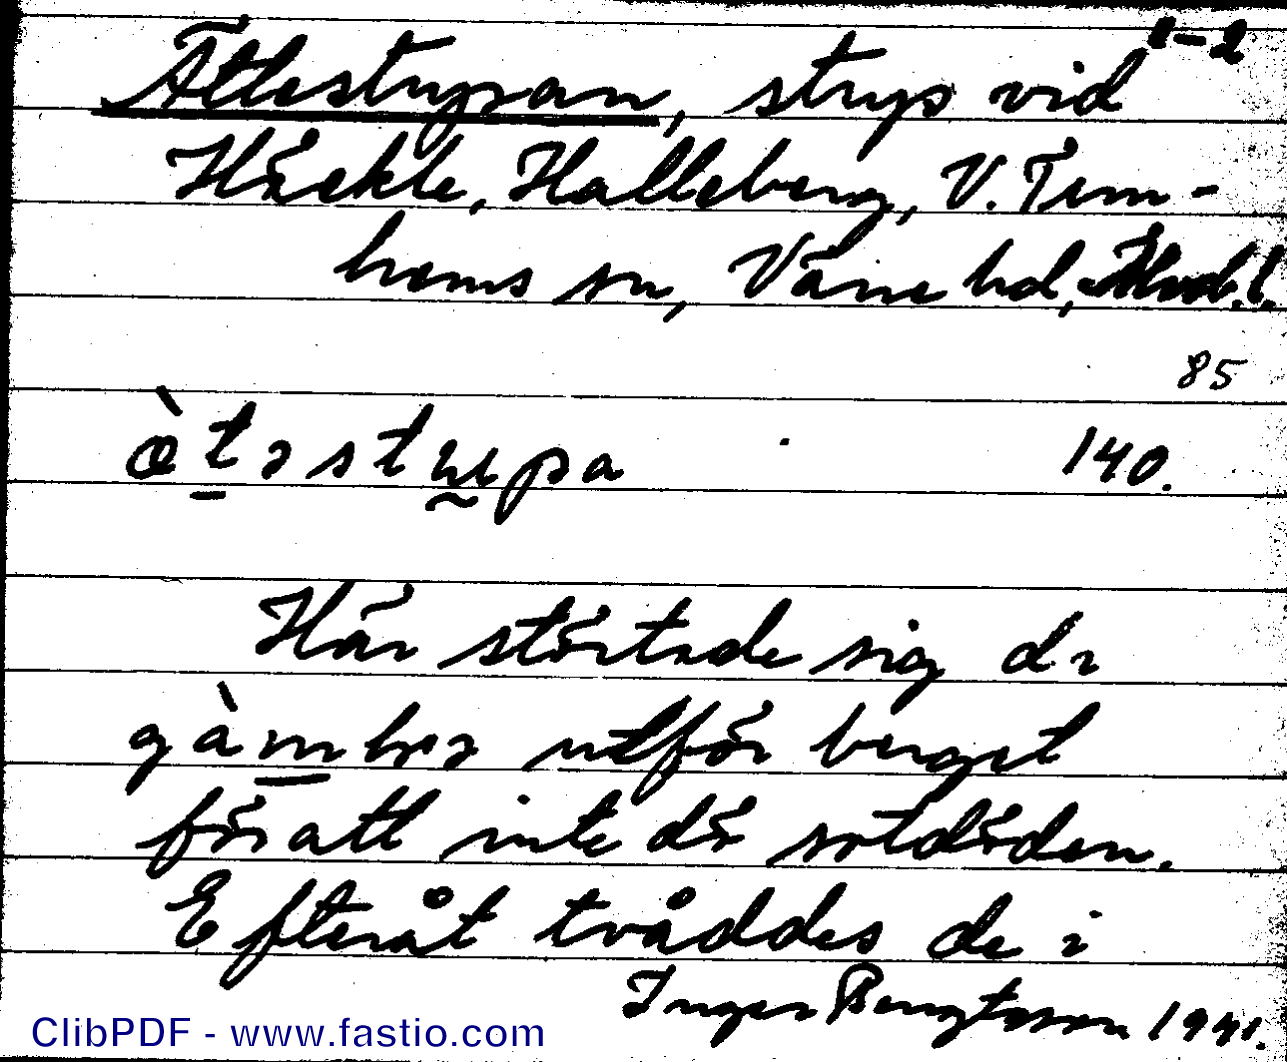 1-2
Ättestupan, strup vid
Häckle, Halleberg, V. Tun-
hems sn, Väne hd,
85
140.
Här störtade sig
utför berget
för att inte dö sotdöden.
Efteråt tvåddes de i
Inger Bengtsson 1941.
ClibPDF - www.fastio.com